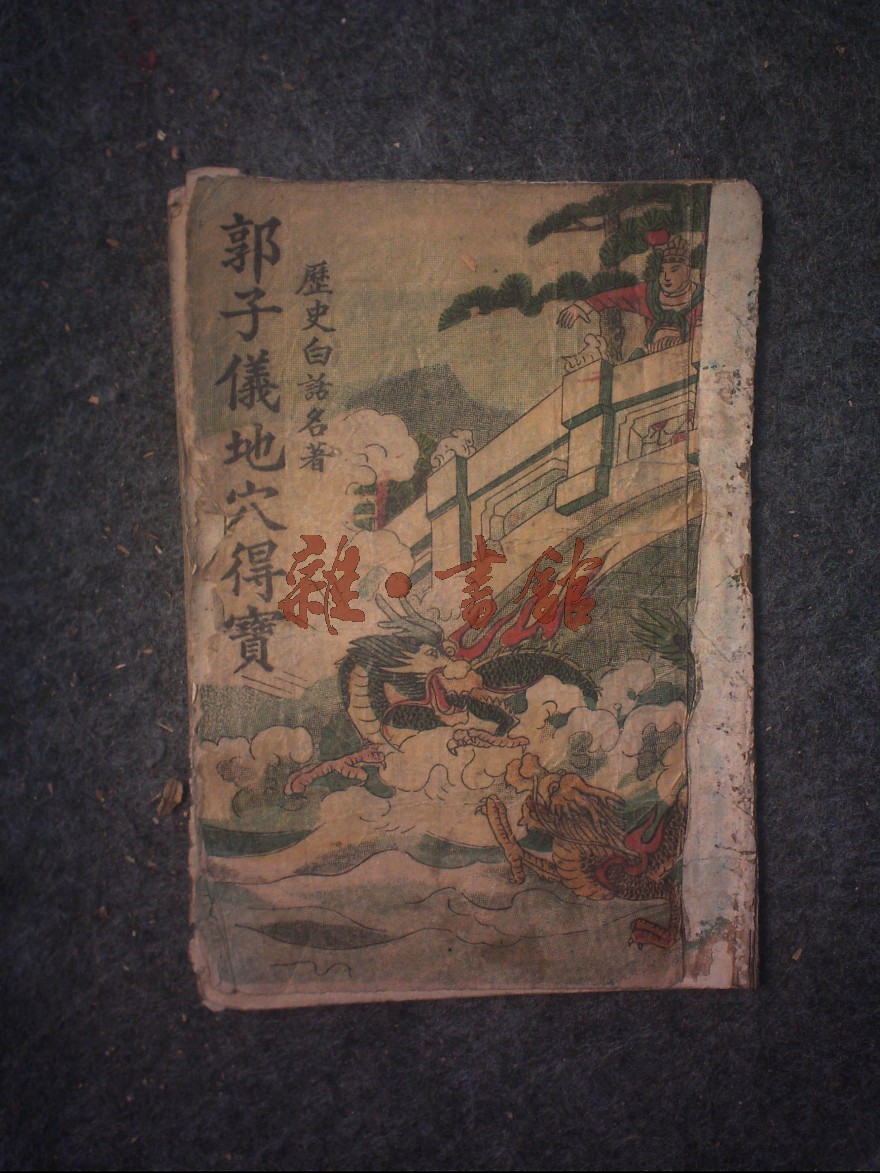 歷史白話名著
郭子儀地穴得寶
雜·書舘